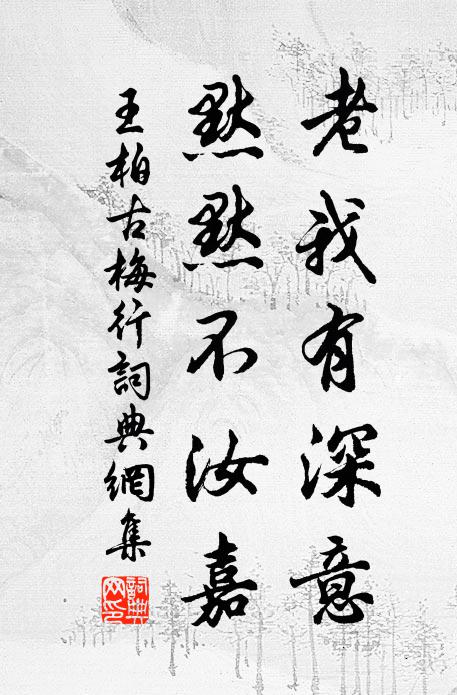 老我有深意
默默不汝嘉
王柏古梅行詞典網集
詞典網印